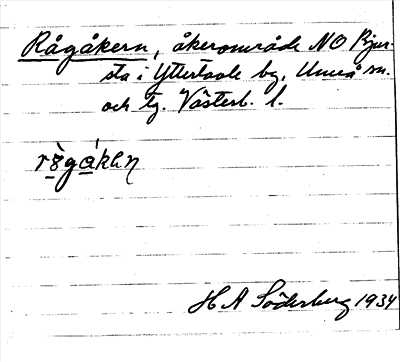 Rågåkern, åkerområde NO Bjur-
sta i Yttertavle by, Umeå sn.
och tg. Västerb. l.
H A Söderberg 1934